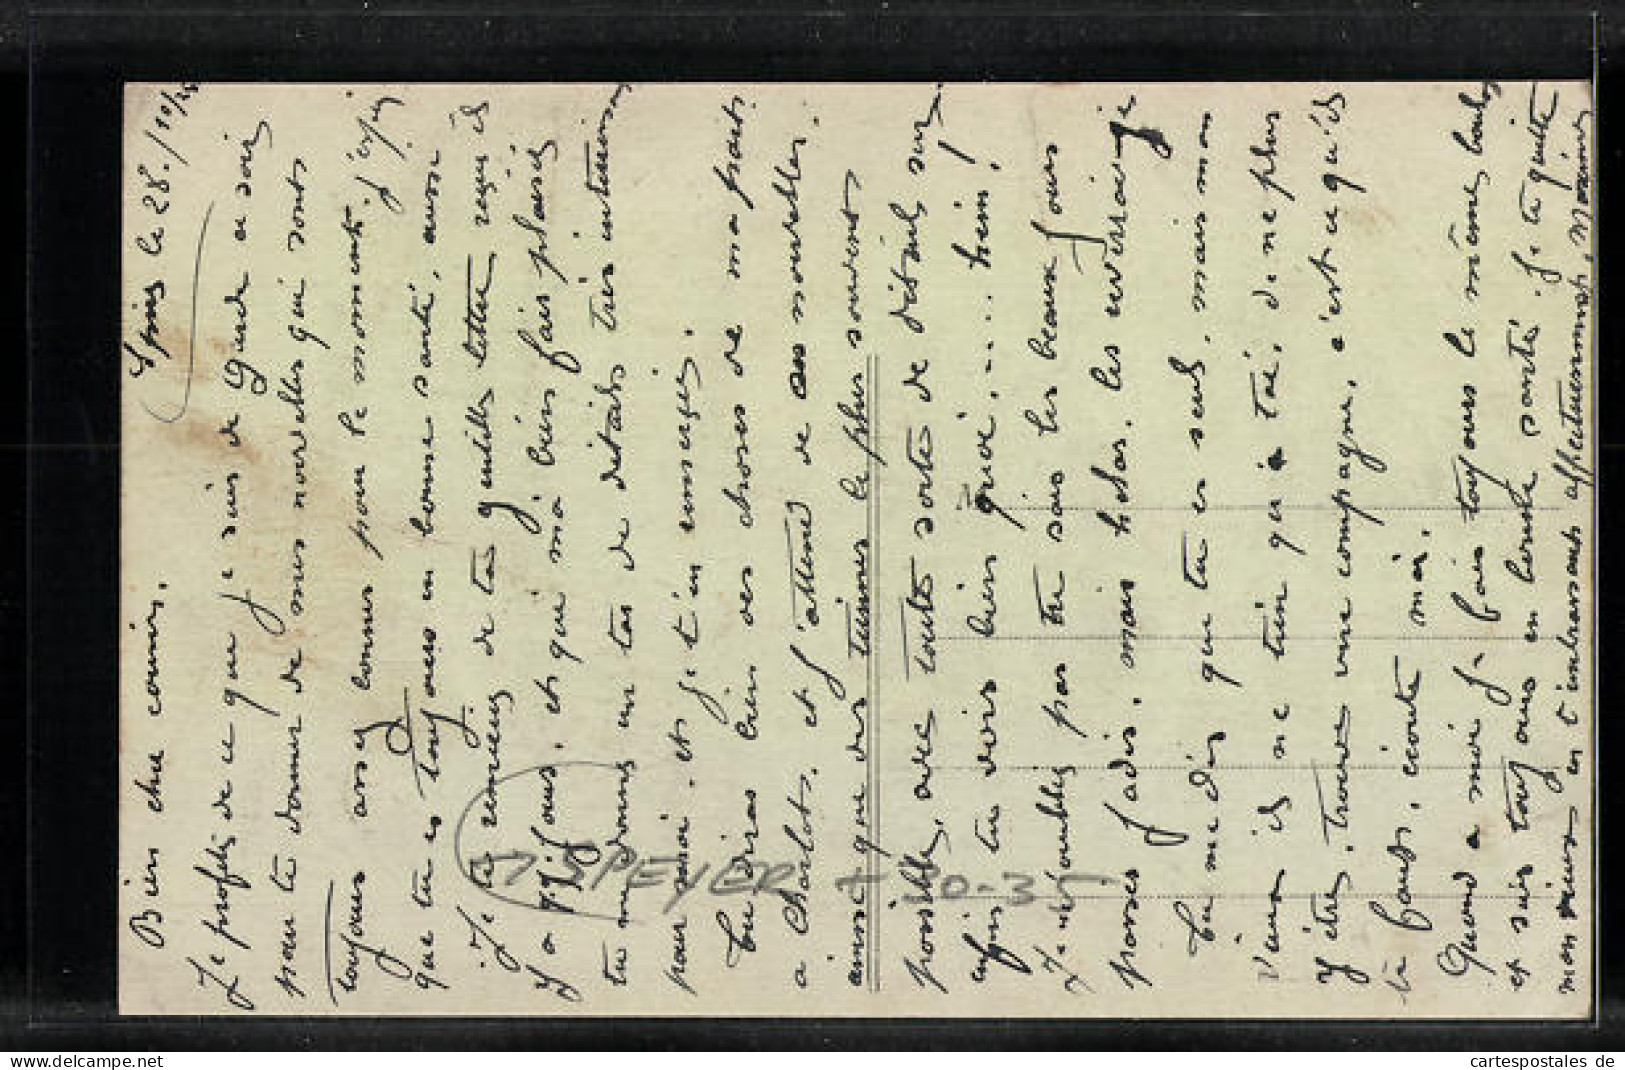 Spire le 28./10/24
Bien cher cousin.
Je profite de ce que je suis de garde ce soir
pour te donner de mes nouvelles qui sont
toujours assez bonnes pour le moment. J'espère
que tu es toujours en bonne santé, aussi
Je te remercie de ta gentille lettre reçu il
y a qq jours, et qui m'a bien fais plaisir
tu me donnes un tas de détails très intéressants
pour moi. et je t'en remercie.
Tu diras bien des choses de ma part
a Charlot. et j'attend de ses nouvelles.
ainsi que des tiennes le plus souvent
possible, avec toute sorte de détails sur
enfin tu dois bien quoi, .... hein!
Je n'oublie pas tu sais les beaux jours
passés jadis, mais hélas, les reverrai-je
Tu me dis que tu es seul, mais mon
vieux il ne tien qu'a toi, de ne plus
y être, trouve une compagne, c'est ce qu'il
te faut, écoute moi.
Quand a moi je fais toujours le même boulot
et suis toujours en bonne santé. Je te quitte
mon vieux en t'embrassant affectueusement,
SPEYER
cartespostales de